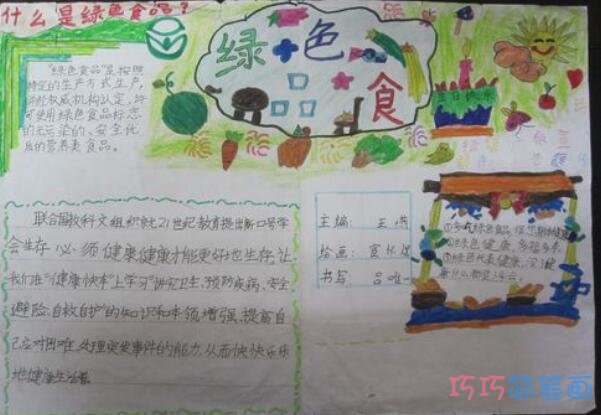 什么是绿色食品?
"绿色食品"是按照
特定的生产方式生产,
并经权威机构认定,许
可使用绿色食品标志
的无污染的、安全优
质的营养类食品。
绿色
食
品
生日快乐
联合国教科文组织就21世纪教育提出新口号学
会生存,必须健康健康才能更好地生存.让
我们在"健康快车"上学习"讲究卫生、预防疾病、安全
避险,自救自护"的知识和本领增强、提高自
己应对困难、处理突发事件的能力,从而快快乐乐
地健康生活着。
主编:王洪
绘画:
书写:吕唯一
①多吃绿色食品,
②绿色健康,多福多寿.
③绿色代表健康,没健
康什么都没
巧巧简笔画